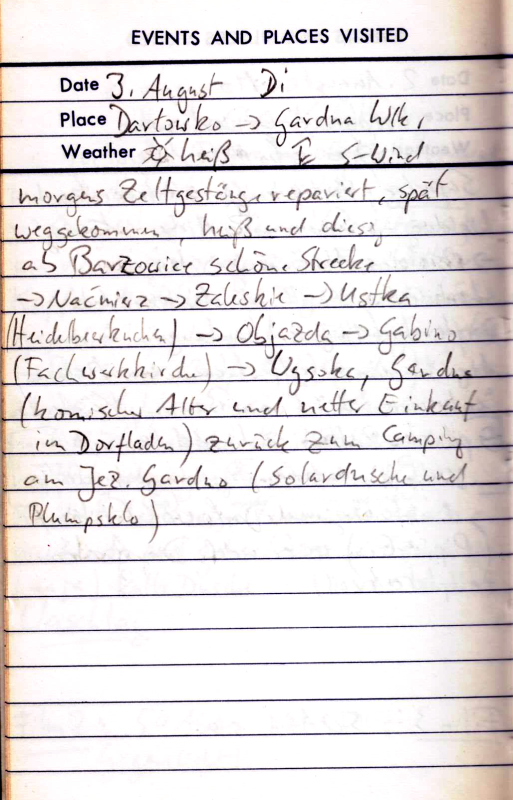 EVENTS AND PLACES VISITED
Date 3. August Di
Place Dartowko -> Gardna Wlk.
Weather heiß S-Wind
morgens Zeltgestänge repariert, spät
weggekommen, heiß und diesig
ab Barzowice schöne Strecke
-> Naćmierz -> Zaleskie -> Ustka
(Heidelbeerkuchen) -> Objazda -> Gabino
(Fachwerkkirche) -> Wysoka, Gardna
(komischer Alter und netter Einkauf
im Dorfladen) zurück zum Camping
am Jez. Gardno (Solardusche und
Plumpsklo)